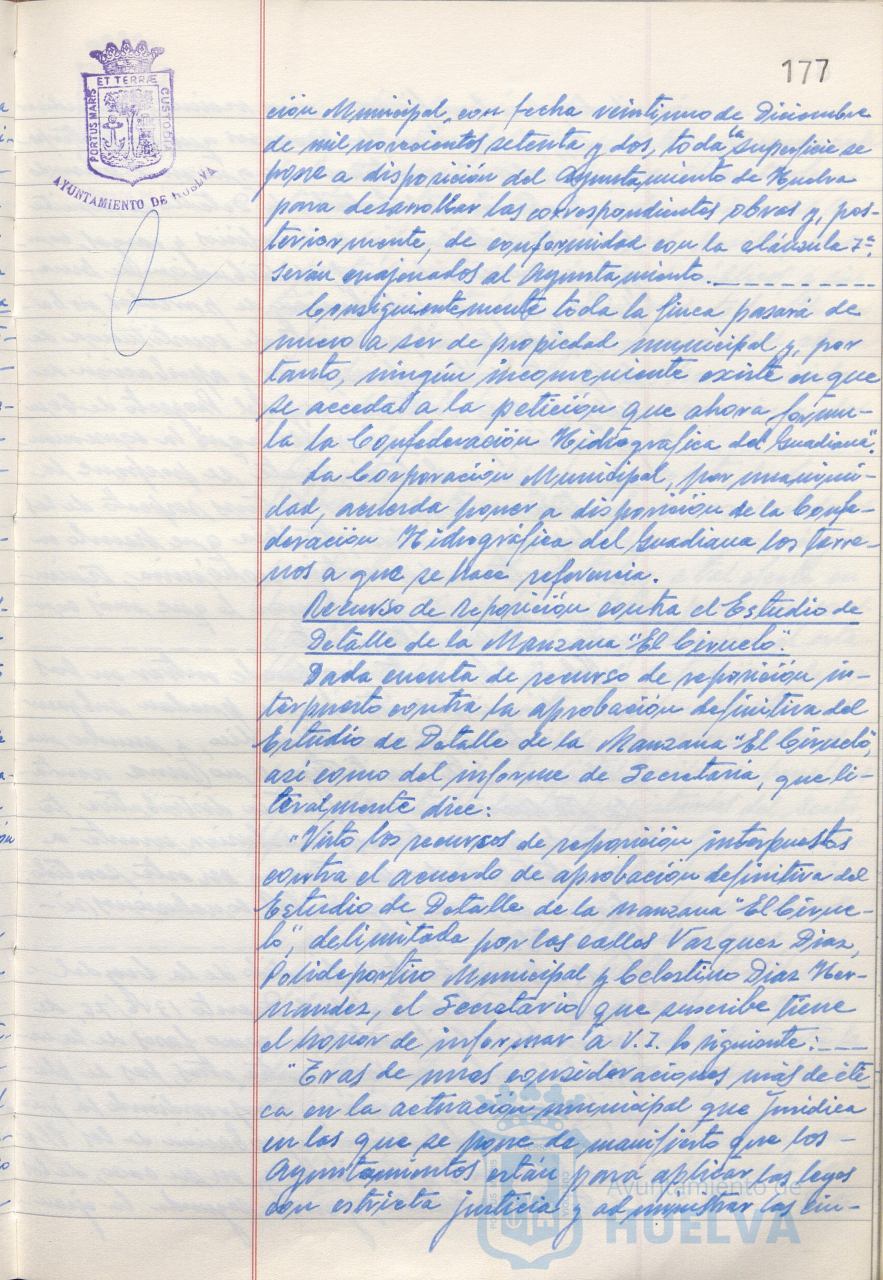 177
ET TERRÆ
PORTUS MARIS
CUSTODIA
AYUNTAMIENTO DE HUELVA
ción Municipal, con fecha veintiuno de Diciembre
de mil novecientos setenta y dos, toda la superficie se
pone a disposición del Ayuntamiento de Huelva
para desarrollar las correspondientes obras y, pos-
teriormente, de conformidad con la cláusula 7ª.
serán enajenados al Ayuntamiento.
Consiguientemente toda la finca pasará de
nuevo a ser de propiedad municipal y, por
tanto, ningún inconveniente existe en que
se acceda a la petición que ahora formu-
la la Confederación Hidrográfica del Guadiana".
La Corporación Municipal, por unanimi-
dad, acuerda poner a disposición de la Confe-
deración Hidrográfica del Guadiana los terre-
nos a que se hace referencia.
Recurso de reposición contra el Estudio de
Detalle de la Manzana "El Ciruelo".
Dada cuenta de recurso de reposición in-
terpuesto contra la aprobación definitiva del
Estudio de Detalle de la Manzana "El Ciruelo",
así como del informe de Secretaría, que li-
teralmente dice:
"Visto los recursos de reposición interpuestos
contra el acuerdo de aprobación definitiva del
Estudio de Detalle de la manzana "El Cirue-
lo", delimitada por las calles Vazquez Diaz,
Polideportivo Municipal y Celestino Diaz Her-
nandez, el Secretario que suscribe tiene
el honor de informar a V.I. lo siguiente:
"Tras de unas consideraciones más de éti
ca en la actuación municipal que jurídica
en las que se pone de manifiesto que los
Ayuntamientos están para aplicar las leyes
con estricta justicia y administrar los ciu-
Ayuntamiento de
HUELVA